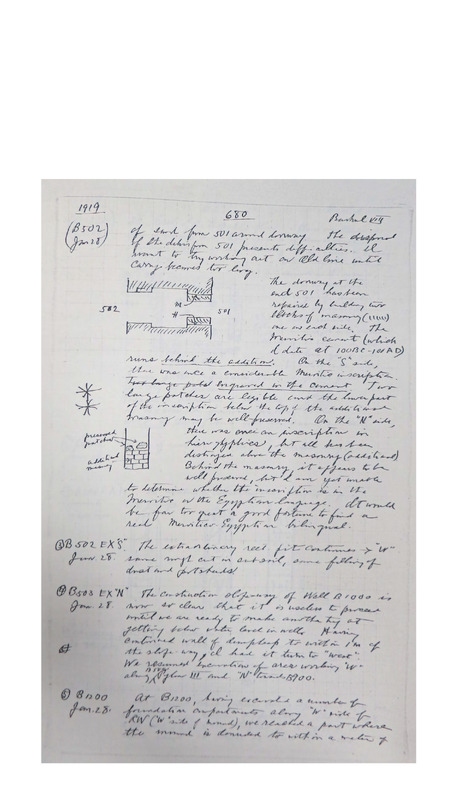 1919
680
Barkal VII
(B 502)
Jan 28)
of sand from 501 around doorway the disposal
of the debris from 501 presents difficulties. I
want to try working out an Old line until
carry becomes too long.
502
501
The doorway at the
end 501 has been
repaired by building two
blocks of masonry (IIIII)
one on each side. The
Meroitic cement (which
I date at 100BC-100AD)
runs behind the addition. On the "S" side,
there was once a considerable Meroitic inscription.
Two large patches engraved in the cement Two
large patches are legible and the lower part
of the inscription below the top of the additional
masonry may be well preserved. On the "N" side,
preserved
patches
additional
masonry
there was once an inscription in
hieroglyphics, but all has been
destroyed above the masonry (additional)
Behind the masonry it appears to be
well preserved, but I am yet unable
to determine whether the inscription is in the
Meroitic or the Egyptian language. It would
be far too great a good fortune to find a
real Meroitic-Egyptian bilingual.
B 502 EX "S" The extraordinary rect. pit continues → "W"
Jan 28. same cut in subsoil, same filling of
dust and potsherds
B 503 EX "N" The construction of Wall B 1000 is
Jan 28. now so clear that it is useless to proceed
until we are ready to make another try at
getting below water level in wells. Having
continued wall to within 1m of
the slope way, I had it turn to "West".
We resumed excavation of area working "W"
along III and "N" toward B 700.
B 1200 At B 1200, having excavated a number of
Jan. 28. foundation compartments along "N" side of
("W" side of mound), we reached a part where
the mound is denuded to within a meter of